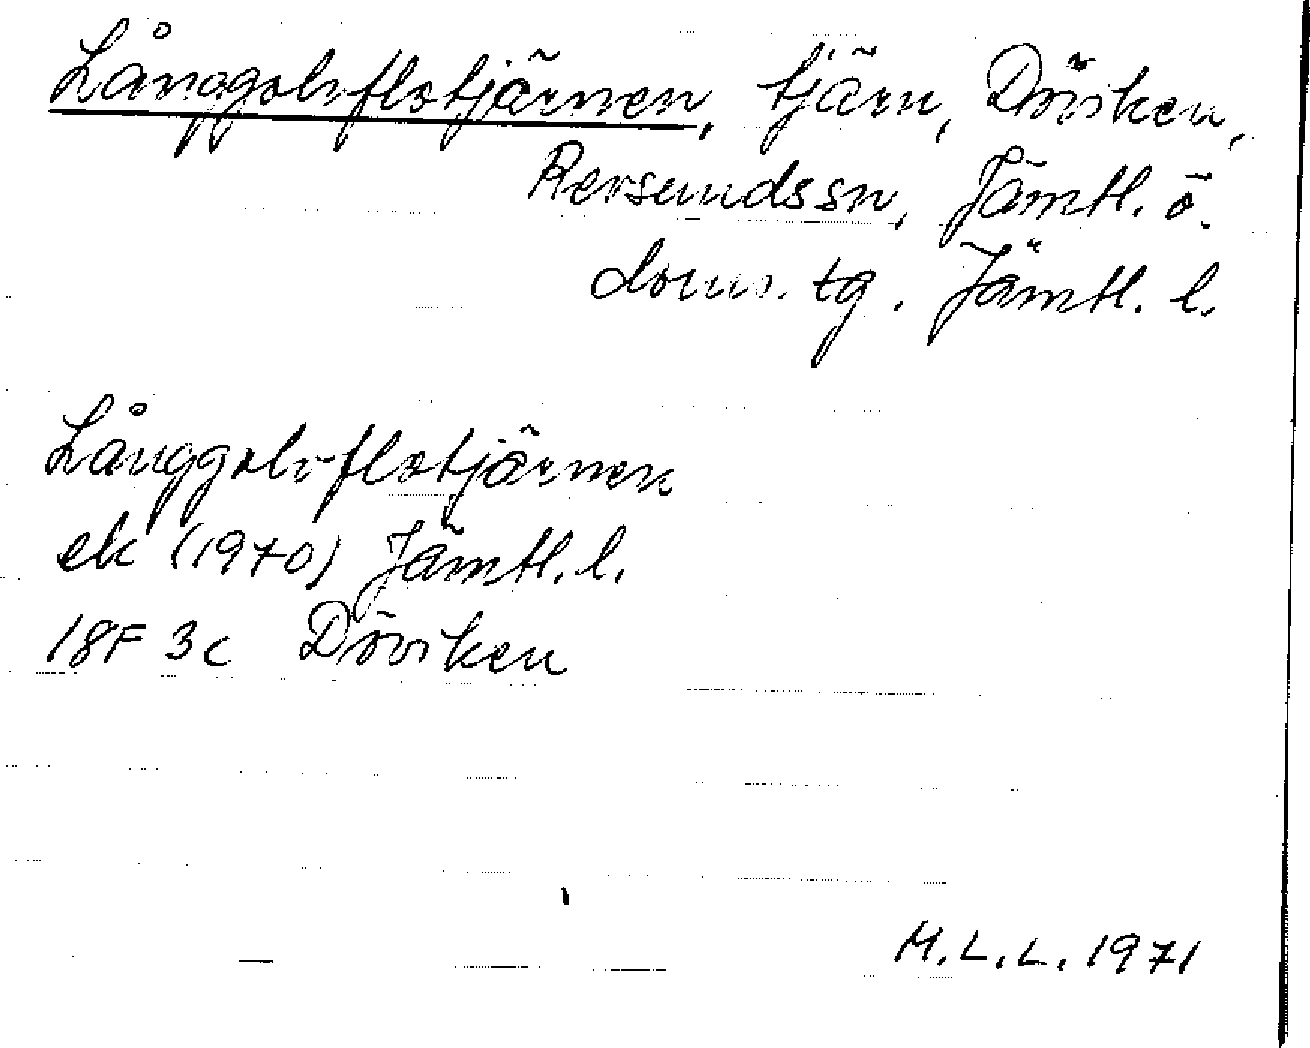 Långgolvflotjärnen, tjärn, Döviken,
Revsundssn, Jämtl. ö.
doms. tg. Jämtl. l.
Långgolvflotjärnen
ek (1970) Jämtl. l.
18F 3c Döviken
M.L.L. 1971